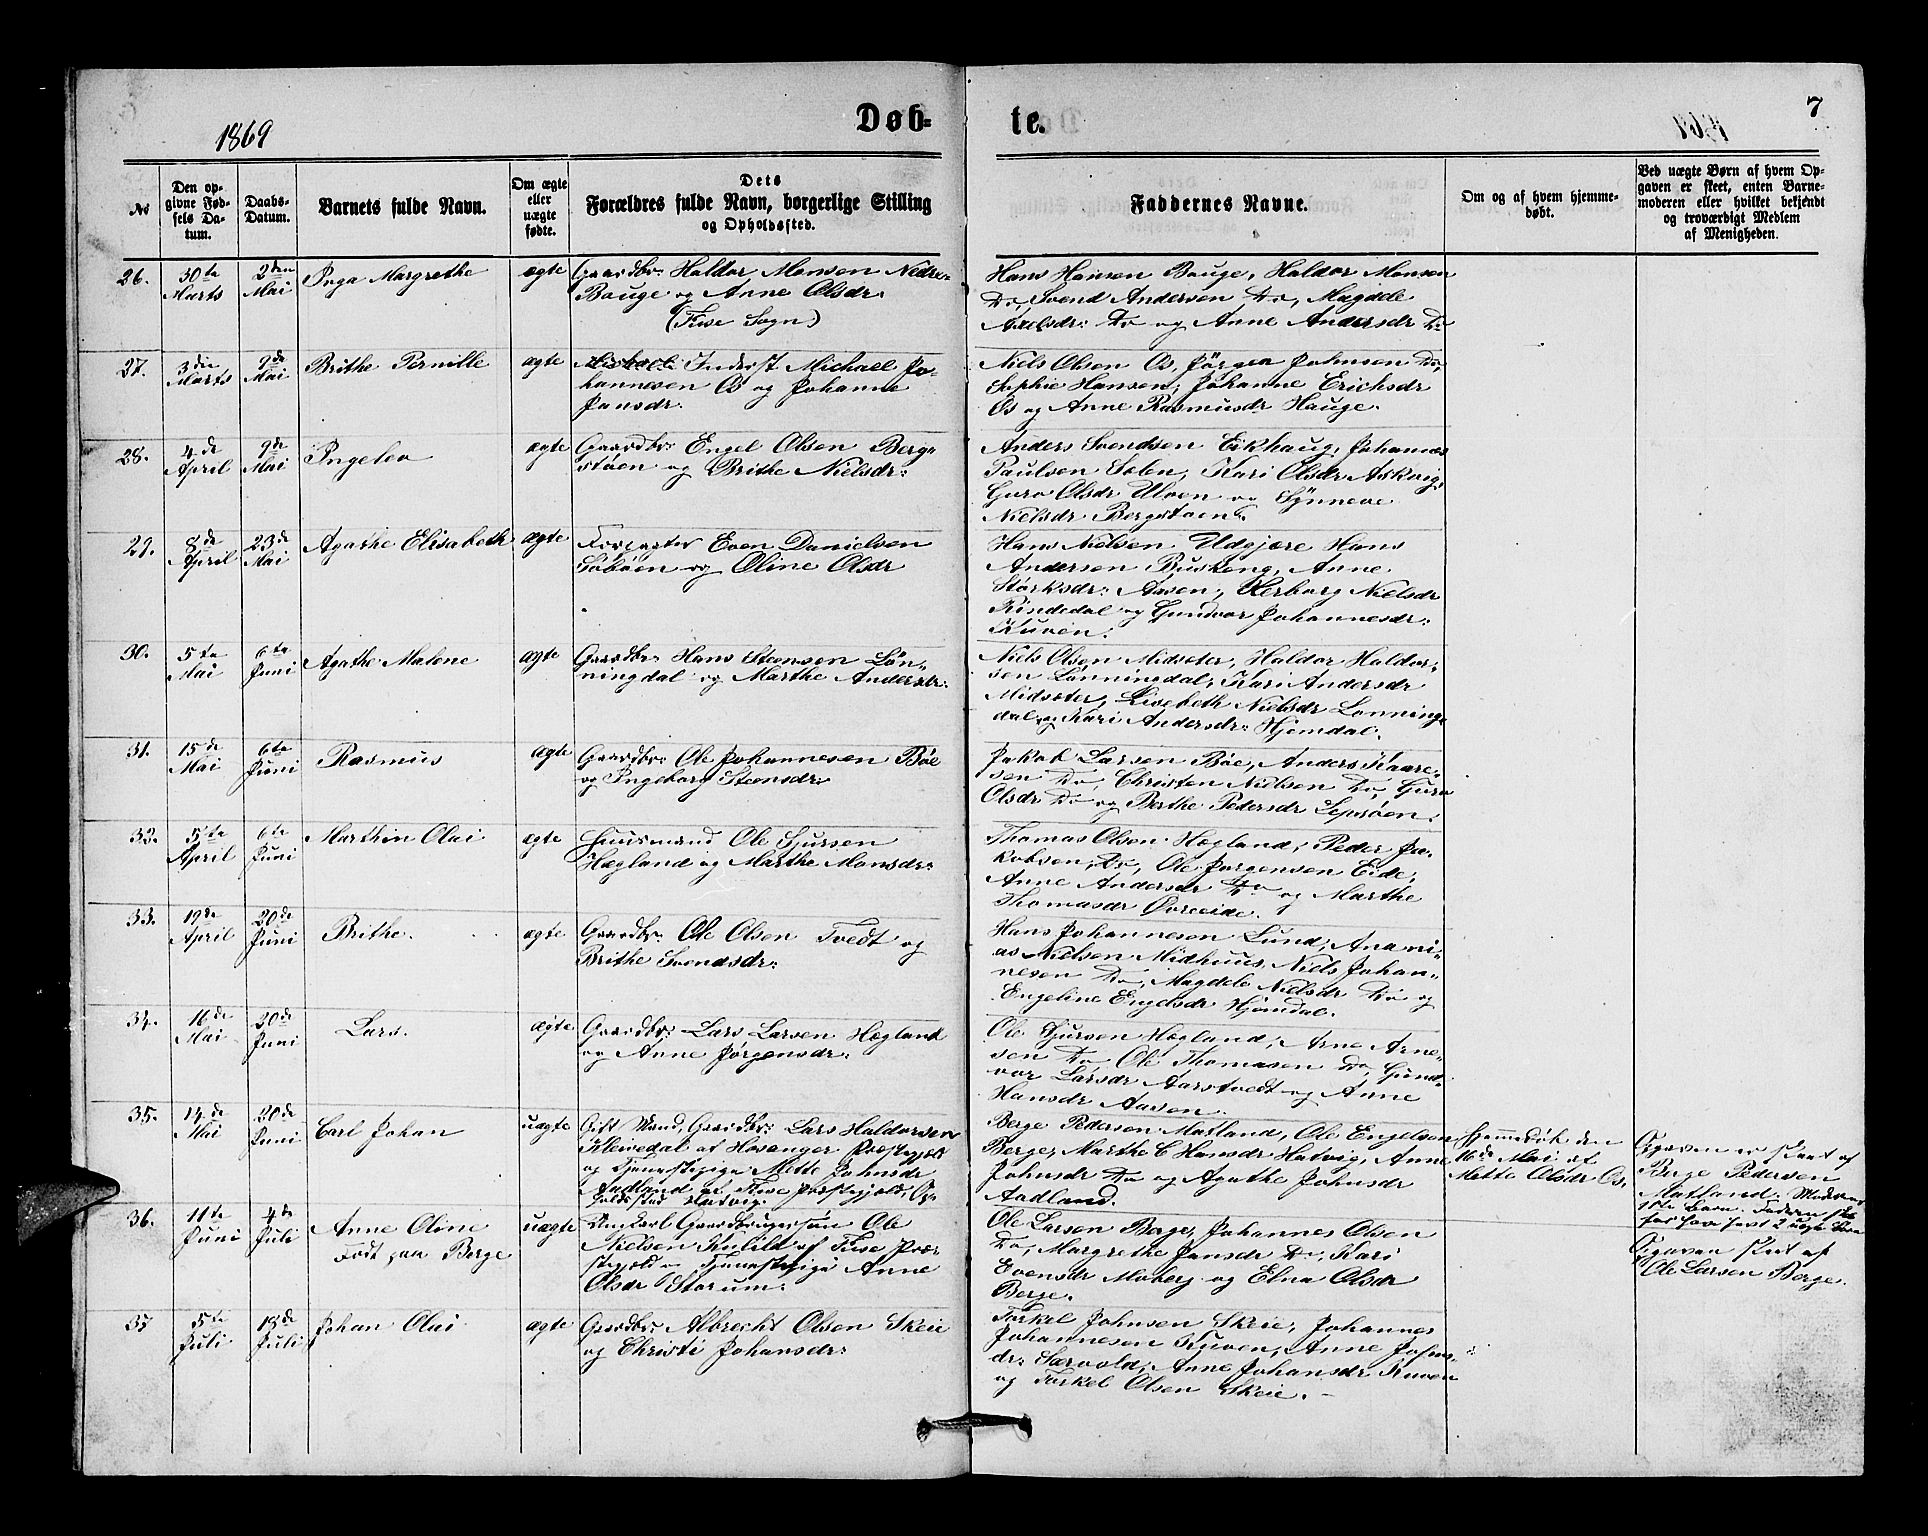 1869
Døb-
te.
7
No
Den op-
givne Fød-
sels Da-
tum.
Daabs-
Datum.
Barnets fulde Navn.
Om ægte
eller
uægte
fødte.
Dets
Forældres fulde Navn, borgerlige Stilling
og Opholdssted.
Faddernes Navne.
Om og af hvem hjemme-
døbt.
Ved uægte Børn af hvem Op-
gaven er skeet, enten Barne-
moderen eller hvilket bekjendt
og troværdigt Medlem
af Menigheden.
26.
30te
Marts
2den
Mai
Inga Margrethe
ægte
Gaardbr: Haldor Monsen Nedre-
Bauge og Anne Olsdr:
(Fuse Sogn)
Hans Hansen Bauge, Haldor Monsen
Do, Svend Andersen Do, Magdele
Axelsdr: Do og Anne Andersdr Do
27.
3die
Marts
9de
Mai
Brithe Pernille
ægte
Inderst Michael Jo-
hannesen Os og Johanne
Jansdr.
Niels Olsen Os, Jørgen Johnsen Do,
Sophie Hansen, Johanne Erichsdr
Os og Anne Rasmusdr Hauge.
28.
4de
April
9de
Mai
Ingelev
ægte
Gaardbr: Engel Olsen Berg-
støen og Brithe Nielsdr:
Anders Svendsen Eikhaug, Johannes
Paulsen Solen, Kari Olsdr Askvig,
Guro Olsdr Ulven og Synneve
Nielsdr Bergstøen.
29.
8de
April
23de
Mai
Agathe Elisabeth
ægte
Forpagter Even Danielsen
Søbøen og Oline Olsdr
Hans Nielsen Udsjøre Hans
Andersen Buskeng, Anne
Størksdr: Aasen, Herborg Nielsdr
Rindedal og Gundvor Johannesdr:
Kuven.
30.
5te
Mai
6te
Juni
Agathe Malene
ægte
Gaardbr: Hans Steensen Løn-
ningdal og Marthe Andersdr:
Niels Olsen Midsæter, Haldor Haldor-
sen Lønningdal, Kari Andersdr
Midsæter, Lisebeth Nielsdr Lønning-
dal og Kari Andersdr: Hjemdal.
31.
15de
Mai
6te
Juni
Rasmus
ægte
Gaardbr: Ole Johannesen Bøe
og Ingeborg Steensdr:
Jakob Larsen Bøe, Anders Kaare-
sen Do, Christen Nielsen Do, Guro
Olsdr Do og Berthe Pedersdr Lepsøen.
32.
5te
April
6te
Juni
Marthin Olai
ægte
Huusmand Ole Sjursen
Hægland og Marthe Monsdr:
Thomas Olsen Hægland, Peder Ja-
kobsen, Do, Ole Jørgensen Eide,
Anne Andersdr Do og Marthe
Thomasdr Øvreeide.
33.
19de
April
20de
Juni
Brithe.
ægte
Gaardbr: Ole Olsen Tvedt og
Brithe Svendsdr:
Hans Johannesen Lund, Anani-
as Nielsen Midhuus, Niels Johan-
nesen Do, Magdele Nielsdr Do og
Engeline Engelsdr Hjemdal.
34.
16de
Mai
20de
Juni
Lars.
ægte
Gaardbr: Lars Larsen Hægland
og Anne Jørgensdr:
Ole Sjursen Hægland, Arne Arne-
sen Do, Ole Thomasen Do, Gund-
vor Larsdr Aarstvedt og Anne
Hansdr Aasen.
35.
14de
Mai
20de
Juni
Carl Johan
uægte
Gift Mand, Gaardbr: Lars Haldorsen
Kleivedal af Hosanger Præstegjæld
og Tjenestepige Mette Johnsdr
Aadland af Fuse Præstegjæld, Op-
holdssted Hatvig.
Berge Pedersen Matland, Ole Engelsen
Berge, Marthe C Hansdr Hatvig, Anne
Johnsdr Do og Agathe Johnsdr
Aadland.
Hjemmedøbt den
16de Mai af
Mette Olsdr Os.
Opgaven er skeet af
Berge Pedersen
Matland. Moderens
1ste Barn. Faderen skal
før have havt 2 uægte Børn
36.
11te
Juni
4de
Juli
Anne Oline
Født paa Berge
uægte
Ungkarl Gaardbrugersøn Ole
Nielsen Kulild af Fuse Præ-
stegjæld og Tjenestepige Anne
Olsdr Storum.
Ole Larsen Berge, Johannes Olsen
Do, Margrethe Jansdr Do, Kari
Evensdr Moberg og Elna Olsdr
Berge.
Opgaven skeet af
Ole Larsen Berge.
37
5te
Juli
18de
Juli
Johan Olai
ægte
Gaardbr: Albrecht Olsen Skeie
og Christi Johansdr:
Torkel Johnsen Skeie, Johannes
Johannesen Kuven, Anne Johns-
dr: Særvold, Anne Johansdr Kuven
og Torkel Olsen Skeie.